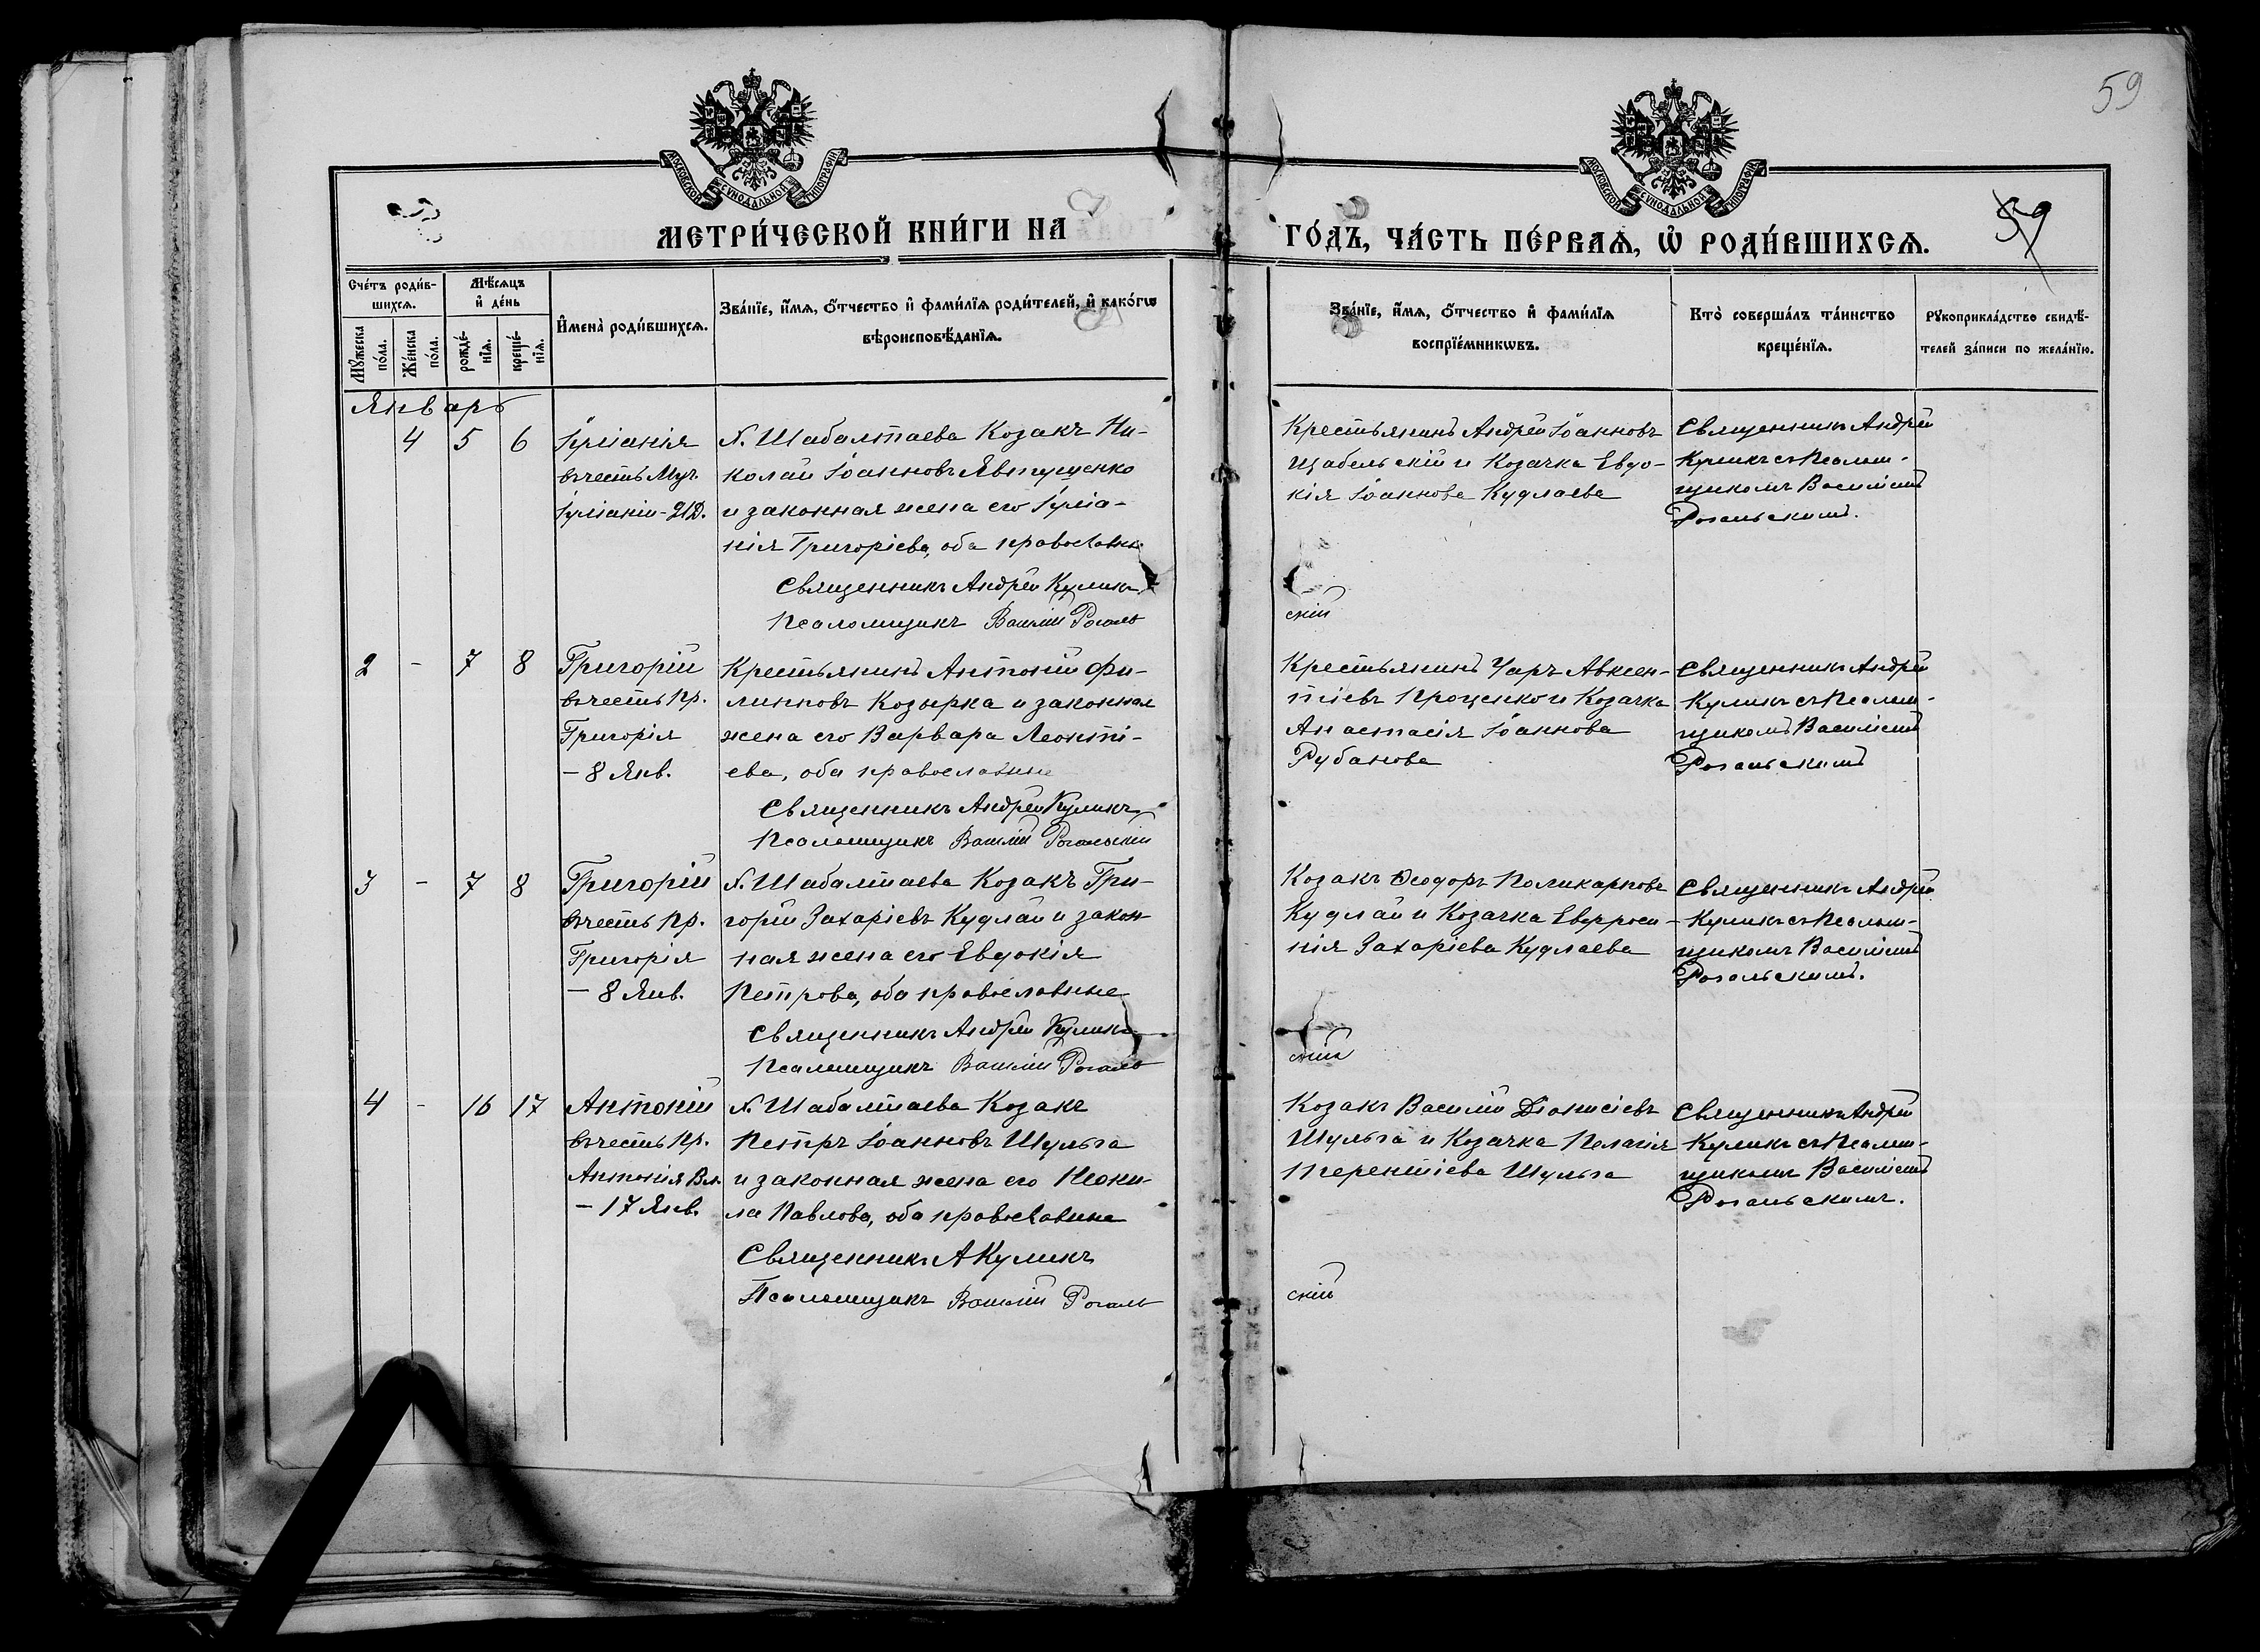 59
МОСКОВСКОЙ СѴНОДАЛЬНОЙ ТИПОГРАФІИ
МОСКОВСКОЙ СѴНОДАЛЬНОЙ ТИПОГРАФІИ
МЕТРИ́ЧЕСКОЙ КНИ́ГИ НА
ГО́ДЪ, ЧА́СТЬ ПЕ́РВАѦ, Ѡ РОДИ́ВШИХСѦ.
59
Сче́тъ роди́в-
шихсѧ.
Мѣ́сѧцъ
и де́нь
Мꙋ́жеска
по́ла.
Же́нска
по́ла.
рожде́-
нїѧ.
креще́-
нїѧ.
Имена̀ роди́вшихсѧ.
Зва́нїе, и́мѧ, ѻ́тчество и фами́лїѧ роди́телей, и како́гѡ
вѣроисповѣ́данїѧ.
Зва́нїе, и́мѧ, ѻ́тчество и фами́лїѧ
воспрїе́мникѡвъ.
Кто̀ соверша́лъ та́инство
креще́нїѧ.
Рꙋкоприкла́дство свидѣ́-
телей за́писи по жела́нїю.
Январь
4 5 6
Іуліанія
въ честь Муч.
Іуліаніи - 21 Д.
х. Шабалтаева Козакъ Ни-
колай Іоанновъ Явтушенко
и законная жена его Іуліа-
нія Григоріева, оба православны
Священникъ Андрей Куликъ
Псаломщикъ Василій Рогаль
скій
Крестьянинъ Андрей Іоанновъ
Щабельскій и Козачка Евдо-
кія Іоаннова Кудлаева
Священникъ Андрей
Куликъ съ Псалом-
щикомъ Василіемъ
Рогальскимъ.
2 - 7 8
Григорій
въ честь Пр.
Григорія
- 8 Янв.
Крестьянинъ Антоній Фи-
липповъ Козырка и законная
жена его Варвара Леонті-
ева, оба православные
Священникъ Андрей Куликъ
Псаломщикъ Василій Рогальскій
Крестьянинъ Авксен-
тіевъ Проценко и Козачка
Анастасія Іоаннова
Рубанова
Священникъ Андрей
Куликъ съ Псалом-
щикомъ Василіемъ
Рогальскимъ
3 - 7 8
Григорій
въ честь Пр.
Григорія
- 8 Янв.
х. Шабалтаева Козакъ Гри-
горій Захаріевъ Кудлай и закон
ная жена его Евдокія
Петрова, оба православные
Священникъ Андрей Куликъ
Псаломщикъ Василій Рогаль
скій
Козакъ Ѳеодоръ Поликарповъ
Кудлай и Козачка Евфроси-
нія Захаріева Кудлаева
Священникъ Андрей
Куликъ съ Псалом-
щикомъ Василіемъ
Рогальскимъ.
4 - 16 17
Антоній
въ честь Пр.
Антонія Вел.
- 17 Янв.
х. Шабалтаева Козакъ
Петръ Іоанновъ Шульга
и законная жена его Неони-
ла Павлова, оба православные
Священникъ А Куликъ
Псаломщикъ Василій Рогаль
скій
Козакъ Василій Діонисіевъ
Шульга и Козачка Пелагія
Терентіева Шульга
Священникъ Андрей
Куликъ съ Псалом-
щикомъ Василіемъ
Рогальскимъ.